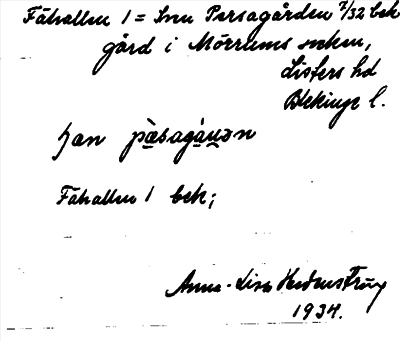 Fähallen 1 = Smn Persagården 7/32 bek
gård i Mörrums socken,
Listers hd
Blekinge l.
han pæ̀sagá̱ṉən
Fähallen 1 bek;
Anna-Lisa Hedenström
1934.